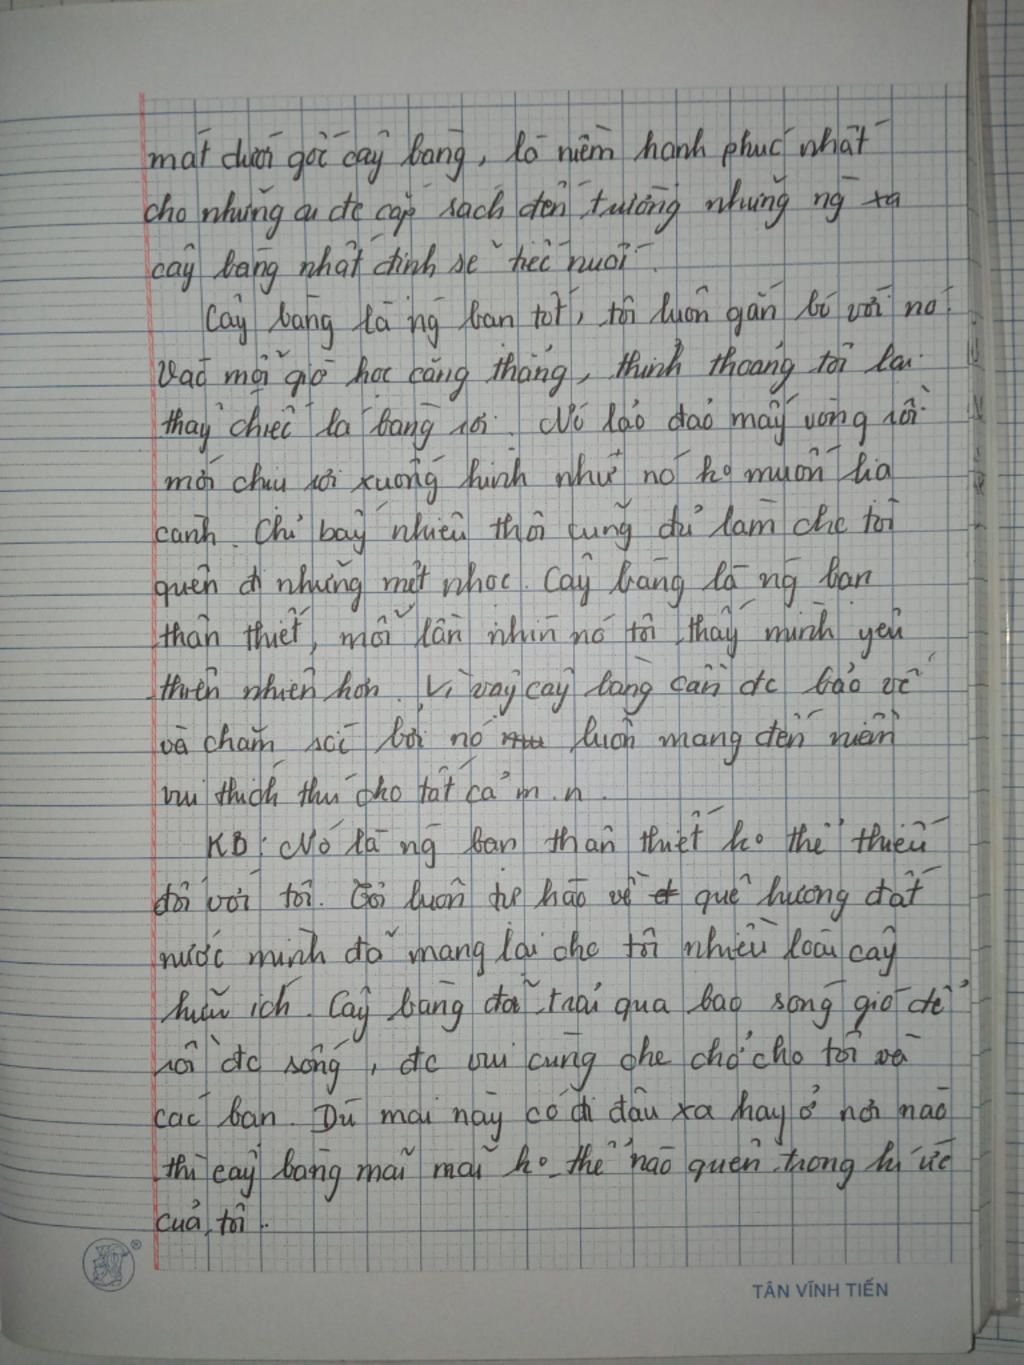 mát dưới gốc cây bàng, là niềm hạnh phúc nhất
cho những ai đc cắp sách đến trường những ng xa
cây bàng nhất định sẽ tiếc nuối.
Cây bàng là ng bạn tốt, tôi luôn gắn bó với nó.
Vào mỗi giờ học căng thẳng, thỉnh thoảng tôi lại
thấy chiếc lá bàng rơi. Nó lảo đảo mấy vòng rồi
mới chịu rơi xuống hình như nó ko muốn lìa
cành. Chỉ bấy nhiêu thôi cũng đủ làm cho tôi
quên đi những mệt nhọc. Cây bàng là ng bạn
thân thiết, mỗi lần nhìn nó tôi thấy mình yêu
thiên nhiên hơn. Vì vậy cây bàng cần đc bảo vệ
và chăm sóc bởi nó luôn mang đến niềm
vui thích thú cho tất cả m.n.
KB: Nó là ng bạn thân thiết ko thể thiếu
đối với tôi. Tôi luôn tự hào về quê hương đất
nước mình đã mang lại cho tôi nhiều loài cây
hữu ích. Cây bàng đã trải qua bao sóng gió để
rồi đc sống, đc vui cùng che chở cho tôi và
các bạn. Dù mai này có đi đâu xa hay ở nơi nào
thì cây bàng mãi mãi ko thể nào quên trong kí ức
của tôi.
TÂN VĨNH TIẾN